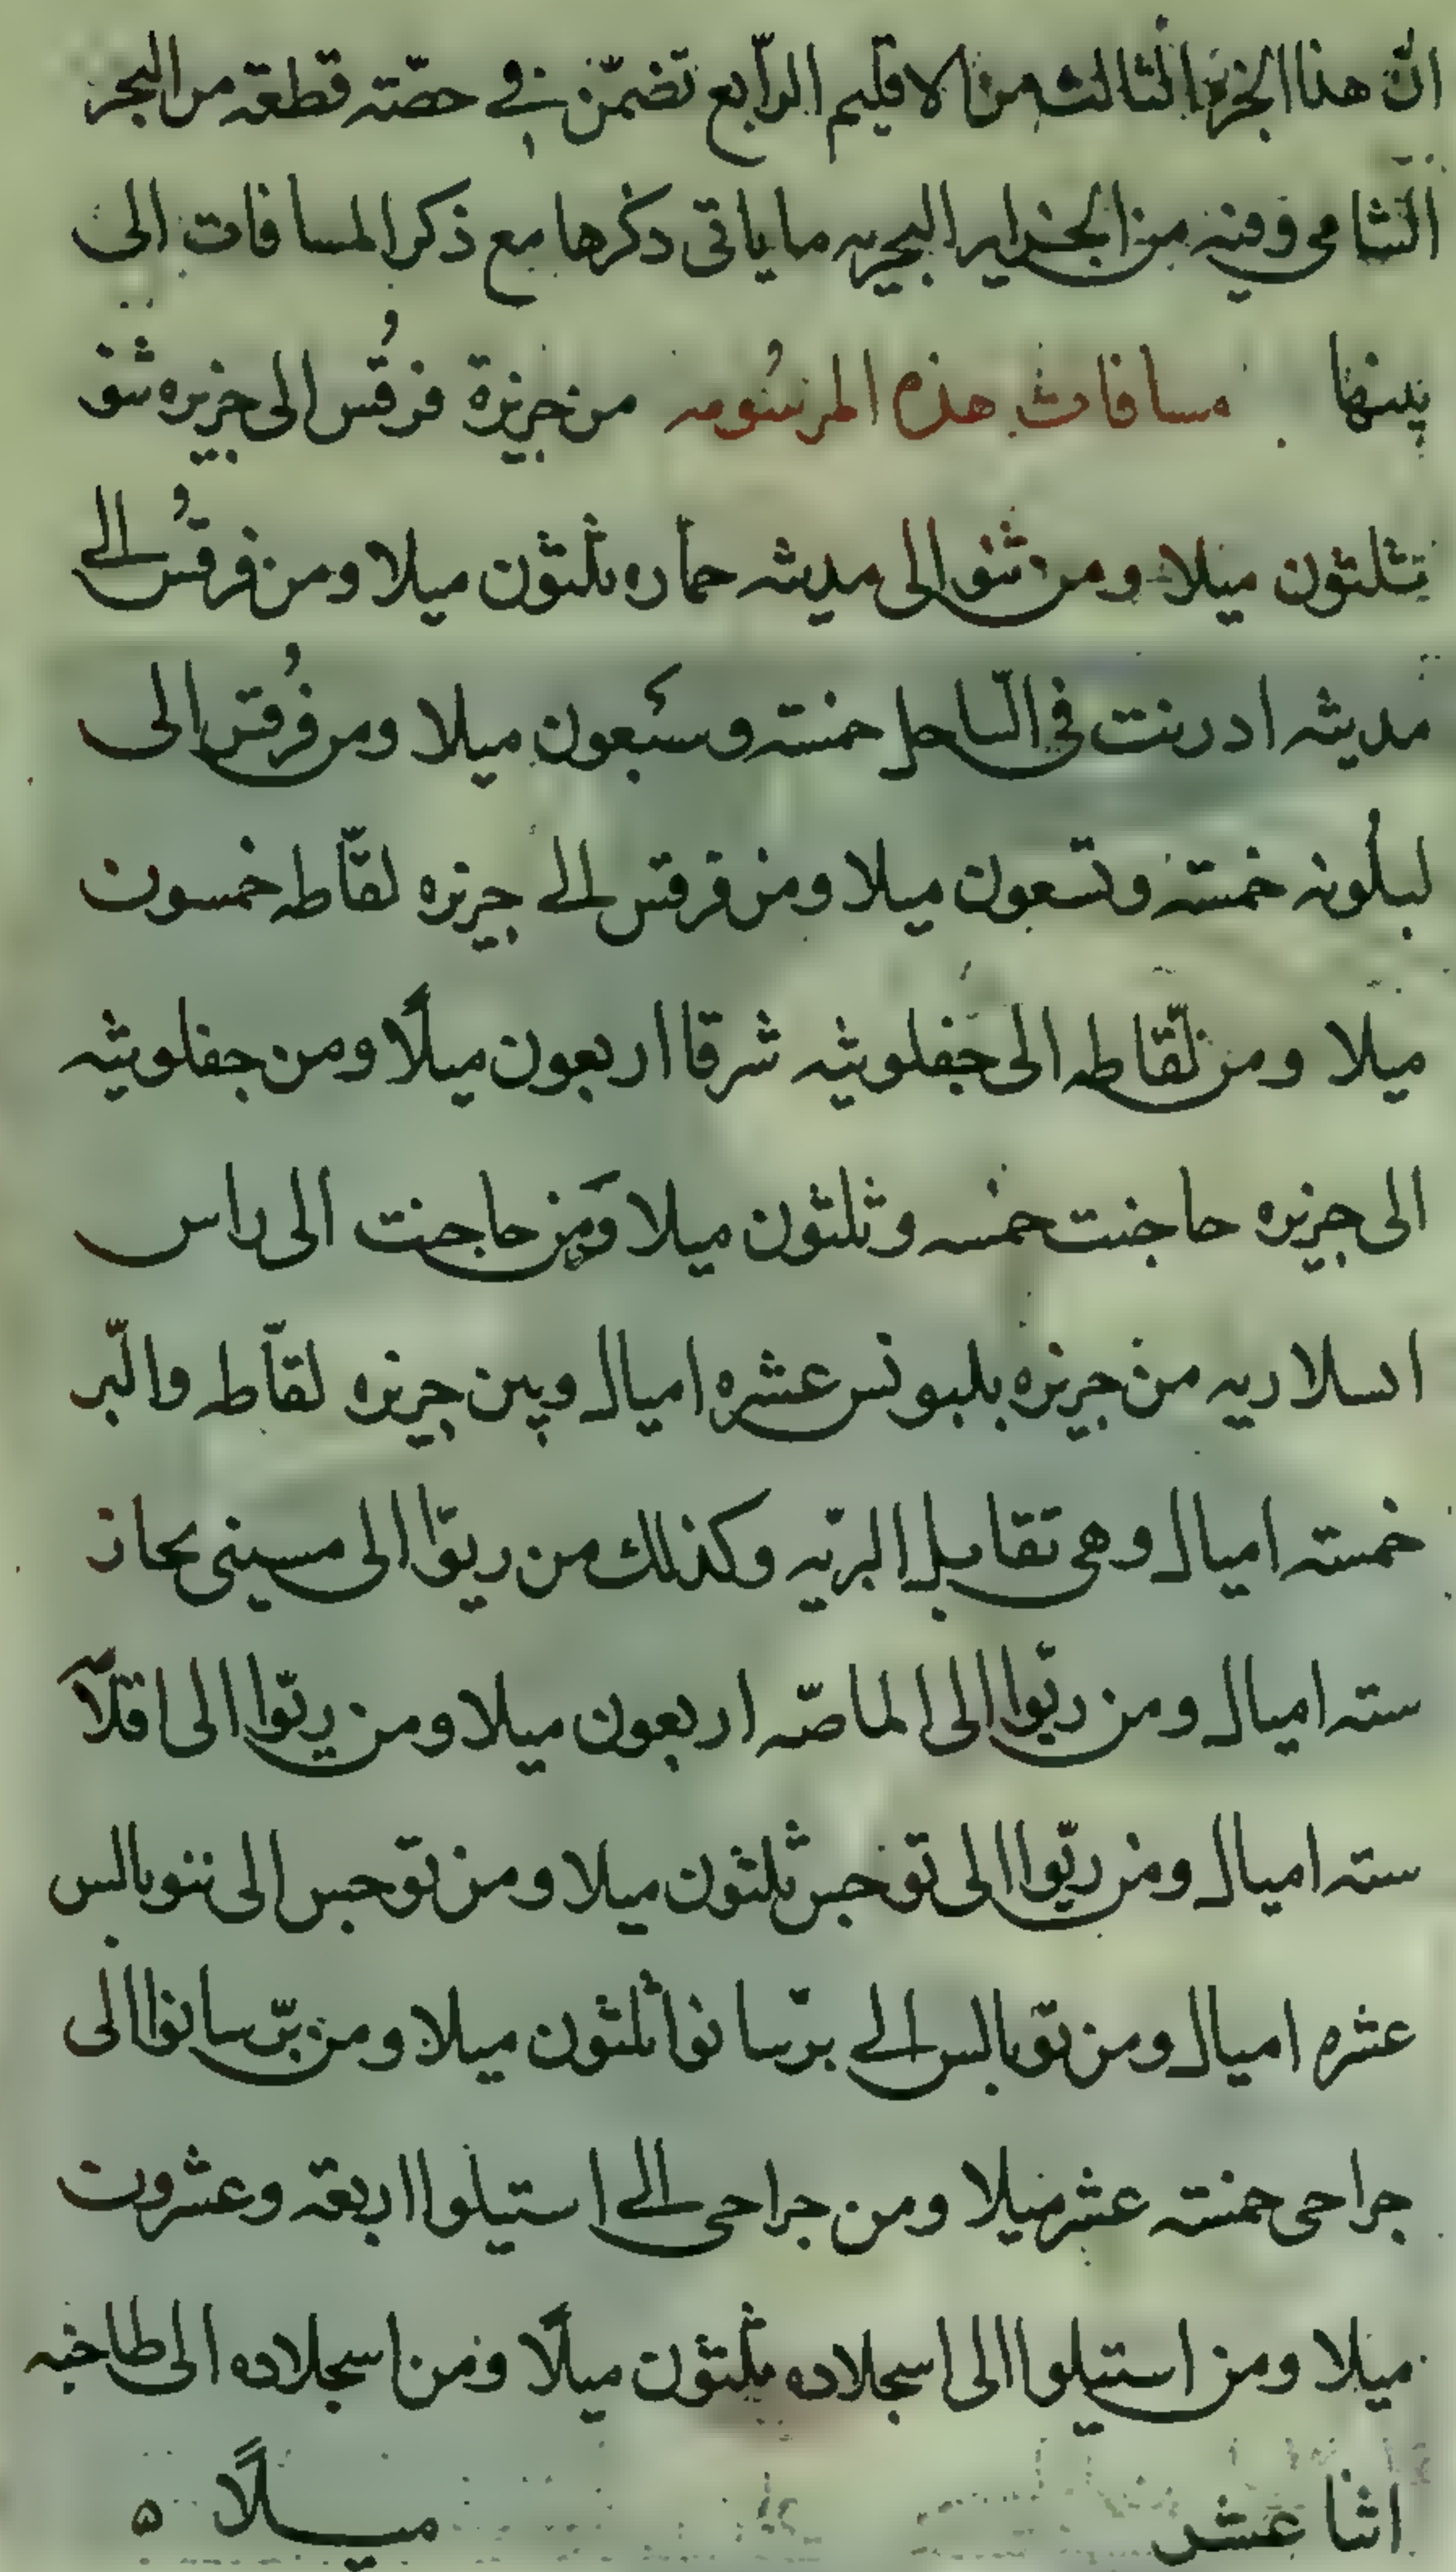 انّ هذا الجزء الثالث من الاقليم الرّابع تضمّن في حصّته قطعة من البحر
الشامي وفيه من الجزاير البحريه ما ياتى ذكرها مع ذكر المسافات الى
بينها مسافات هذه المرسُومه من جزيرة فرقُس الى جزيره ثنو
ثلثون ميلا ومن ثنو الى مدينه حماره ثلثون ميلا ومن فرقُس الى
مدينه ادرنت في السّاحل خمسة وسبعون ميلا ومن فُرقس الى
لبلُونه خمسة وتسعون ميلا ومن فرقس الى جزيره لقّاطه خمسون
ميلا ومن لقّاطه الى جفلونيه شرقا اربعون ميلًا ومن جفلونيه
الى جزيره حاجنت خمسه وثلثون ميلا ومن حاجنت الى راس
اسلاريه من جزيره بلبونس عشره اميال وبين جزيره لقّاطه والبّر
خمسة اميال وهى تقابل البريّه وكذلك من ريوّا الى مسينى مجاز
ستة اميال ومن ريّوا الى الماصّه اربعون ميلا ومن ريّوا الى اقلامه
ستة اميال ومن ريّوا الى توجس ثلثون ميلا ومن توجس الى ننوبالس
عشره اميال ومن توبالس الى برّسانوا ثلثون ميلا ومن برّسانوا الى
جراجى خمسة عشر ميلا ومن جراجى الى استيلوا اربعة وعشرون
ميلا ومن استيلوا الى اسجلاده ثلثون ميلًا ومن اسجلاده الى طاجنه
اثنا عشر ميلًا ه